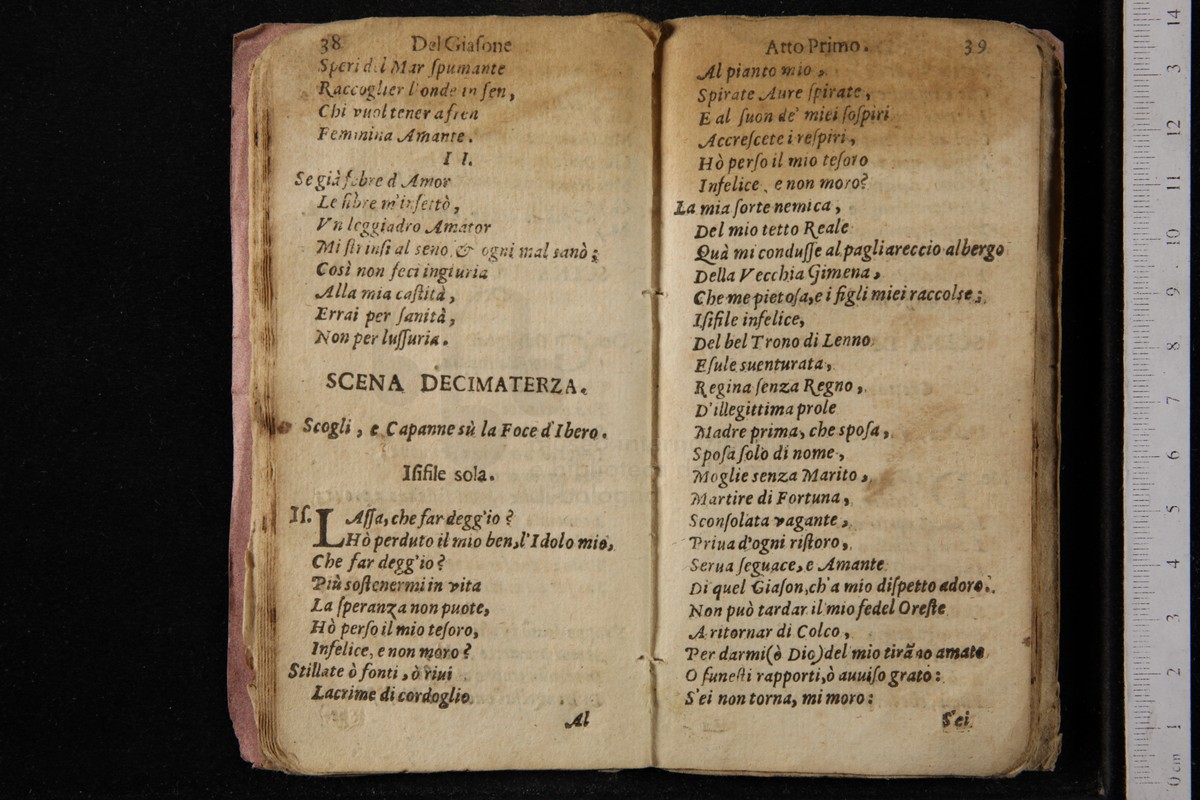 38 Del Giaſone
Speri del Mar ſpumante
Raccoglier l'onde in ſen,
Chi vuol tener a fren
Feminina Amante.
I I.
Se già febre d'Amor
Le fibre m'infettò,
Vn leggiadro Amator
Mi ſtrinſi al seno, & ogni mal sanò;
Così non feci ingiuria
Alla mia caſtità,
Errai per ſanità,
Non per luſſuria.
SCENA DECIMATERZA.
Scogli, e Capanne sù la Foce d'Ibero.
Iſifile sola.
Iſ. LAſſa, che far degg'io?
Hò perduto il mio ben, l'Idolo mio,
Che far degg'io?
Più soſtenermi in vita
La ſperanza non puote,
Hò perſo il mio teſoro,
Infelice, e non moro?
Stillate ò fonti, ò riui
Lacrime di cordoglio
Al
Atto Primo. 39
Al pianto mio,
Spirate Aure ſpirate,
E al ſuon de' miei ſoſpiri
Accreſcete i reſpiri,
Hò perſo il mio teſoro
Infelice, e non moro?
La mia ſorte nemica,
Del mio tetto Reale
Quà mi conduſſe al pagliareccio albergo
Della Vecchia Gimena,
Che me pietoſa, e i figli miei raccolse;
Iſifile infelice,
Del bel Trono di Lenno
Eſule suenturata,
Regina ſenza Regno,
D'illegittima prole
Madre prima, che spoſa,
Spoſa ſolo di nome,
Moglie senza Marito,
Martire di Fortuna,
Sconſolata vagante,
Priua d'ogni riſtoro,
Serua ſeguace, e Amante
Di quel Giaſon, ch'a mio diſpetto adoro.
Non può tardar il mio fedel Oreſte
A ritornar di Colco,
Per darmi (ò Dio) del mio tirāno amato
O funeſti rapporti, ò auuiſo grato:
S'ei non torna, mi moro:
S'ei
0 cm 1 2 3 4 5 6 7 8 9 10 11 12 3 14